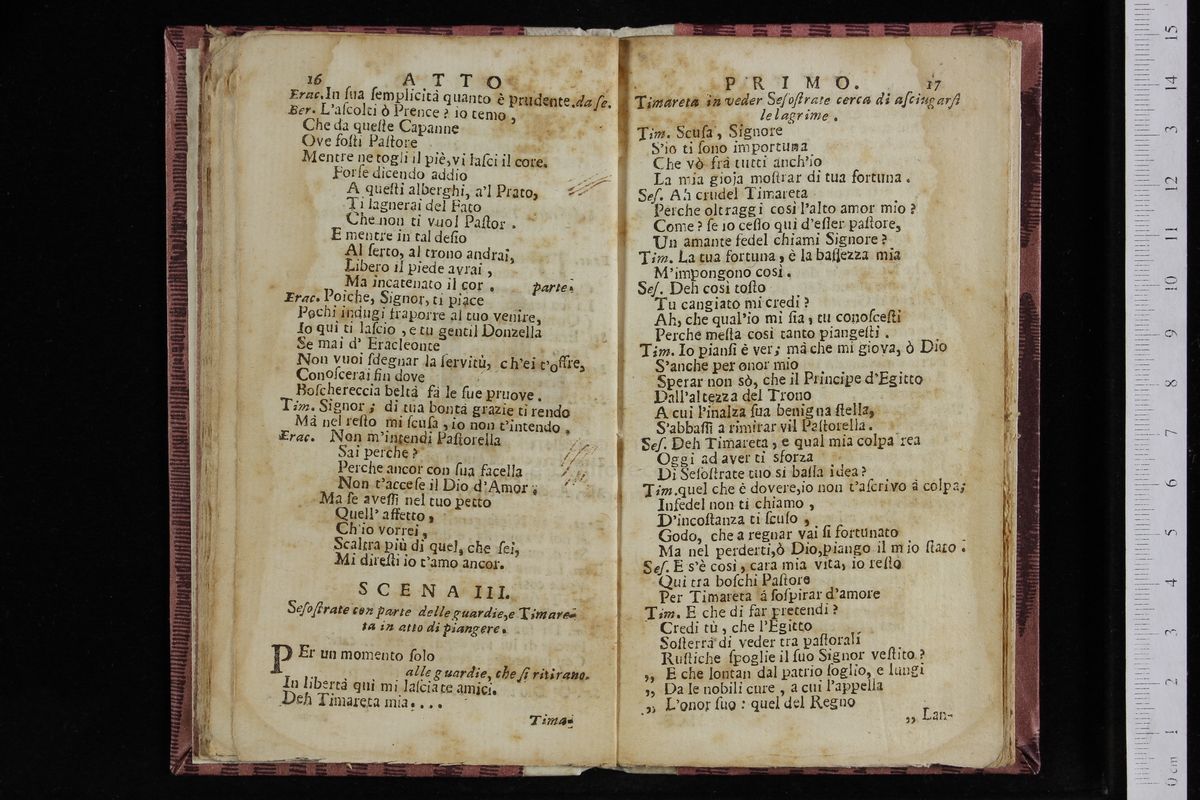 16 ATTO
Erac. In ſua ſemplicità quanto è prudente. da ſe.
Ber. L'aſcolti ò Prence? io temo,
Che da queſte Capanne
Ove foſti Paſtore
Mentre ne togli il piè, vi laſci il core.
Forſe dicendo addio
A queſti alberghi, a'l Prato,
Ti lagnerai del Fato
Che non ti vuol Paſtor.
E mentre in tal deſio
Al ſerto, al trono andrai,
Libero il piede avrai,
Ma incatenato il cor. parte.
Erac. Poiche, Signor, ti piace
Pochi indugi fraporre al tuo venire,
Io qui ti laſcio, e tu gentil Donzella
Se mai d' Eracleonte
Non vuoi ſdegnar la ſervitù, ch'ei t'offre,
Conoſcerai fin dove
Boſchereccia beltà fà le ſue pruove.
Tim. Signor; di tua bontà grazie ti rendo
Mà nel reſto mi ſcuſa, io non t'intendo.
Erac. Non m'intendi Paſtorella
Sai perche?
Perche ancor con ſua facella
Non t'acceſe il Dio d'Amor;
Ma ſe aveſſi nel tuo petto
Quell' affetto,
Ch'io vorrei,
Scaltra più di quel, che ſei,
Mi direſti io t'amo ancor.
SCENA III.
Seſoſtrate con parte delle guardie, e Timare-
ta in atto di piangere.
PEr un momento ſolo
alle guardie, che ſi ritirano.
In libertà qui mi laſciate amici.
Deh Timareta mia....
Tima-
PRIMO. 17
Timareta in veder Seſoſtrate cerca di aſciugarſi
le lagrime.
Tim. Scuſa, Signore
S'io ti ſono importuna
Che vò frà tutti anch'io
La mia gioja moſtrar di tua fortuna.
Seſ. Ah crudel Timareta
Perche oltraggi così l'alto amor mio?
Come? ſe io ceſſo qui d'eſſer paſtore,
Un amante fedel chiami Signore?
Tim. La tua fortuna, è la baſſezza mia
M'impongono così.
Seſ. Deh così toſto
Tu cangiato mi credi?
Ah, che qual'io mi ſia, tu conoſceſti
Perche meſta così tanto piangeſti.
Tim. Io pianſi è ver; mà che mi giova, ò Dio
S'anche per onor mio
Sperar non sò, che il Principe d'Egitto
Dall'altezza del Trono
A cui l'inalza ſua benigna ſtella,
S'abbaſſi a rimirar vil Paſtorella.
Seſ. Deh Timareta, e qual mia colpa rea
Oggi ad aver ti sforza
Di Seſoſtrate tuo sì baſſa idea?
Tim. quel che è dovere, io non t'aſcrivo à colpa;
Infedel non ti chiamo,
D'incoſtanza ti ſcuſo,
Godo, che a regnar vai sì fortunato
Ma nel perderti, ò Dio, piango il mio ſtato.
Seſ. E s'è così, cara mia vita, io reſto
Qui tra boſchi Paſtore
Per Timareta á ſoſpirar d'amore
Tim. E che di far pretendi?
Credi tù, che l'Egitto
Soſterrà di veder tra paſtorali
Ruſtiche ſpoglie il ſuo Signor veſtito?
„ E che lontan dal patrio ſoglio, e lungi
„ Da le nobili cure, a cui l'appella
„ L'onor ſuo: quel del Regno
„ Lan-
15
14
13
12
11
10
9
8
7
6
5
4
3
2
1
0 cm